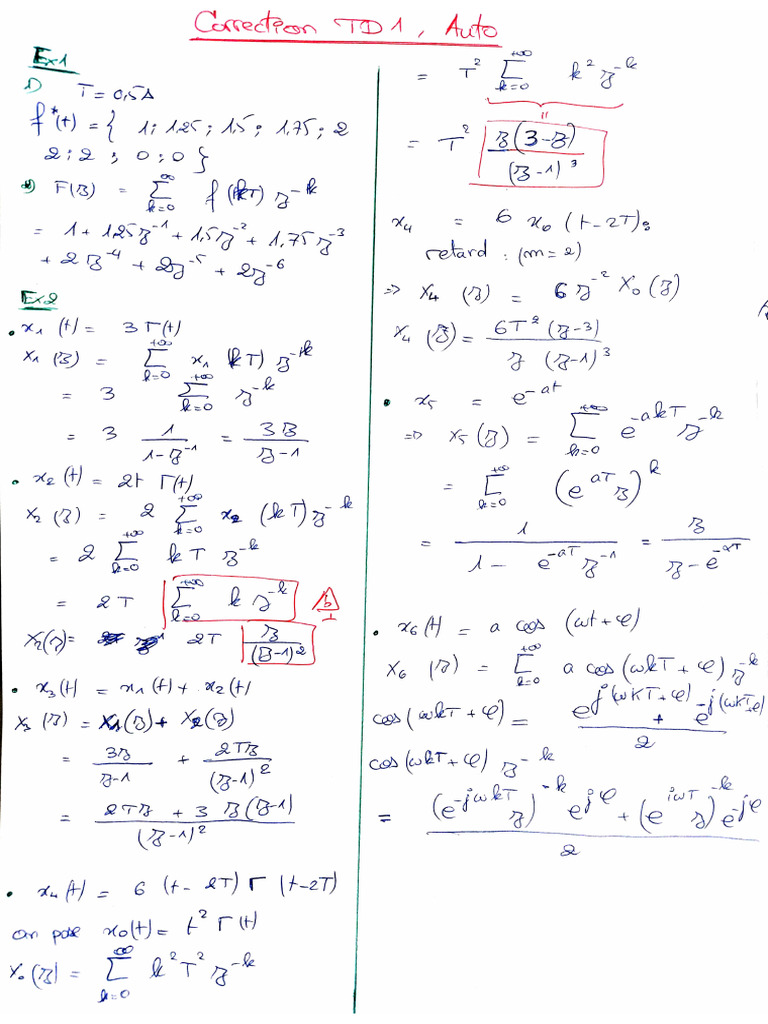 Correction TD1, Auto
Ex1
1) T = 0,5s
f*(t) = { 1 ; 1,25 ; 1,5 ; 1,75 ; 2
2 ; 2 ; 0 ; 0 }
2) F(z) = ∑_{k=0}^{∞} f(kT) z^{-k}
= 1 + 1,25z^{-1} + 1,5z^{-2} + 1,75z^{-3}
+ 2z^{-4} + 2z^{-5} + 2z^{-6}
Ex2
• x₁(t) = 3 Γ(t)
X₁(z) = ∑_{k=0}^{+∞} x₁(kT) z^{-k}
= 3 ∑_{k=0}^{+∞} z^{-k}
= 3 1/(1-z^{-1}) = 3z/(z-1)
• x₂(t) = 2t Γ(t)
X₂(z) = 2 ∑_{k=0}^{+∞} x₂(kT) z^{-k}
= 2 ∑_{k=0}^{+∞} kT z^{-k}
= 2T ∑_{k=0}^{+∞} k z^{-k}
X₂(z) = 2T z/(z-1)²
• x₃(t) = x₁(t) + x₂(t)
X₃(z) = X₁(z) + X₂(z)
= 3z/(z-1) + 2Tz/(z-1)²
= (2Tz + 3z(z-1))/(z-1)²
• x₄(t) = 6 (t-2T) Γ(t-2T)
on pose x₀(t) = t² Γ(t)
X₀(z) = ∑_{k=0}^{∞} k²T² z^{-k}
= T² ∑_{k=0}^{+∞} k² z^{-k}
=
= T² z(3-z)/(z-1)³
x₄ = 6 x₀(t-2T) :
retard : (m=2)
⇒ X₄(z) = 6 z^{-2} X₀(z)
X₄(z) = 6T²(z-3)/(z (z-1)³)
• x₅ = e^{-at}
⇒ X₅(z) = ∑_{k=0}^{+∞} e^{-akT} z^{-k}
= ∑_{k=0}^{+∞} (e^{aT} z)^k
= 1/(1 - e^{-aT} z^{-1}) = z/(z - e^{-aT})
• x₆(t) = a cos (ωt+φ)
X₆(z) = ∑_{k=0}^{+∞} a cos(ωkT + φ) z^{-k}
cos(ωkT + φ) = (e^{j(ωkT+φ)} + e^{-j(ωkT+φ)})/2
cos(ωkT + φ) z^{-k}
= ((e^{-jωkT} z)^{-k} e^{jφ} + (e^{iωT} z)^{-k} e^{-jφ})/2